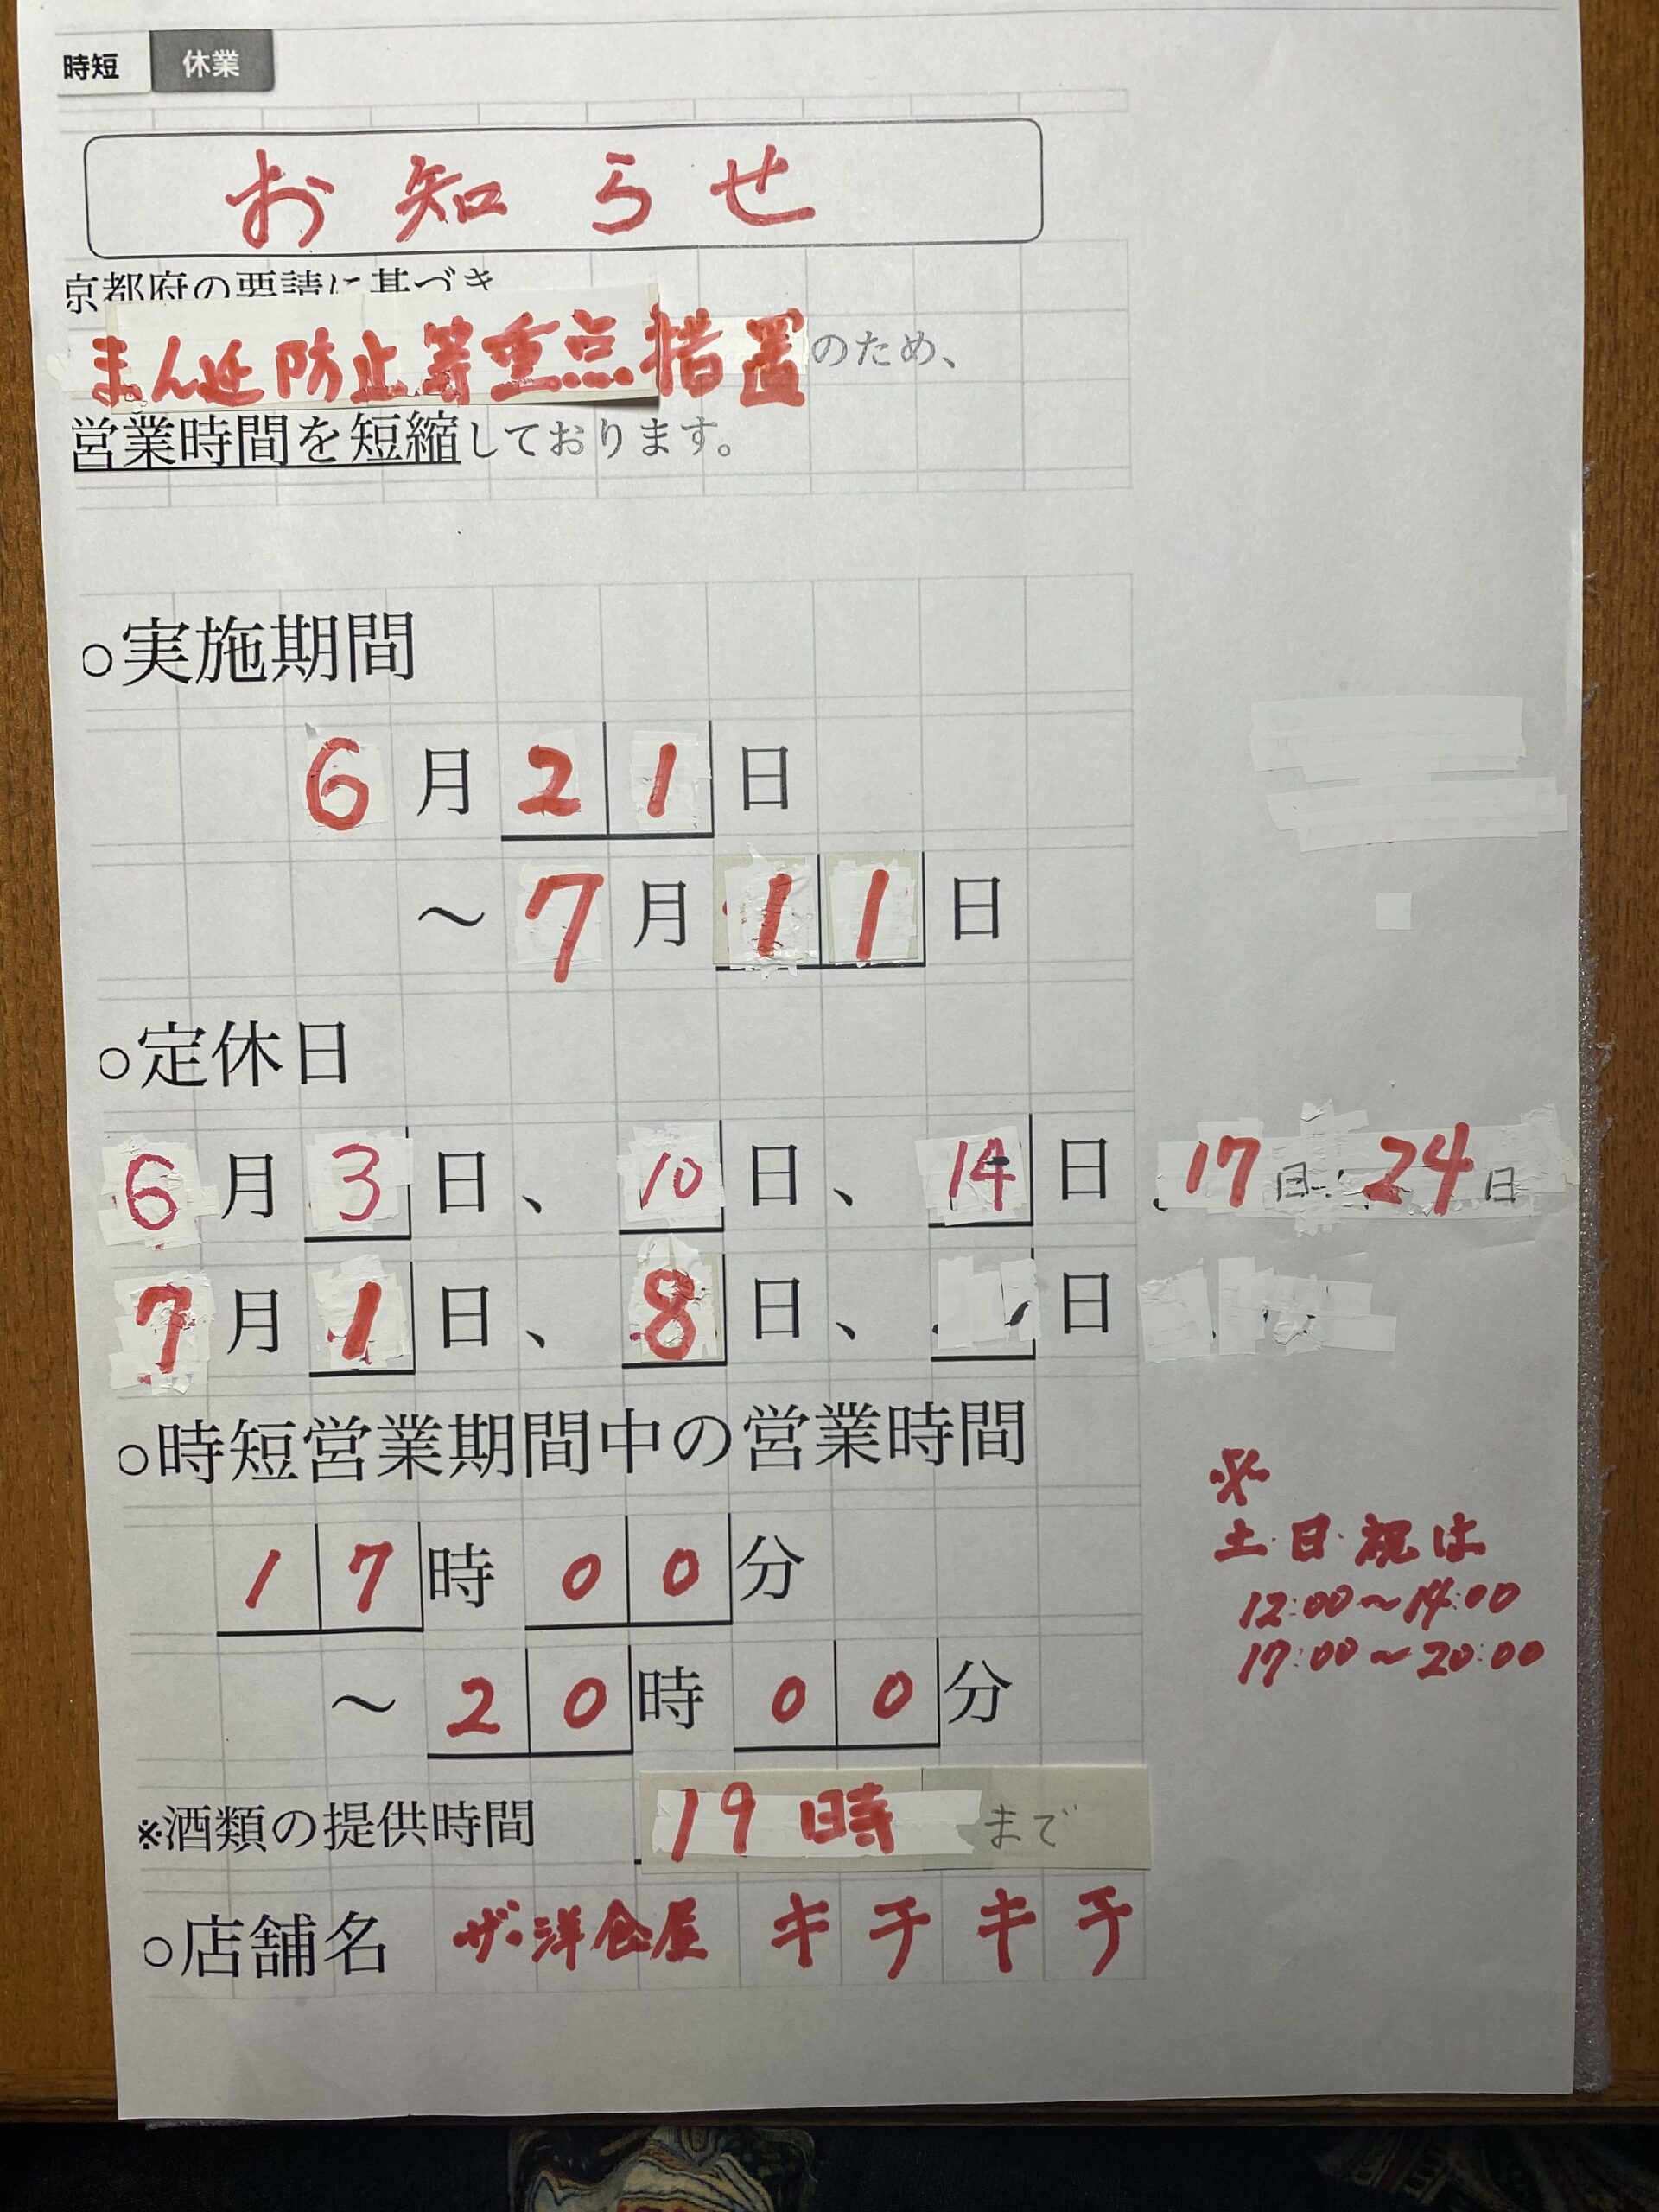 時短 休業
お知らせ
京都府の要請に基づき
まん延防止等重点措置のため、
営業時間を短縮しております。
○実施期間
6月21日
～7月11日
○定休日
6月3日、10日、14日、17日、24日
7月1日、8日、日
○時短営業期間中の営業時間
17時00分
～20時00分
※
土・日・祝は
12:00～14:00
17:00～20:00
※酒類の提供時間 19時まで
○店舗名 ザ・洋食屋 キチキチ